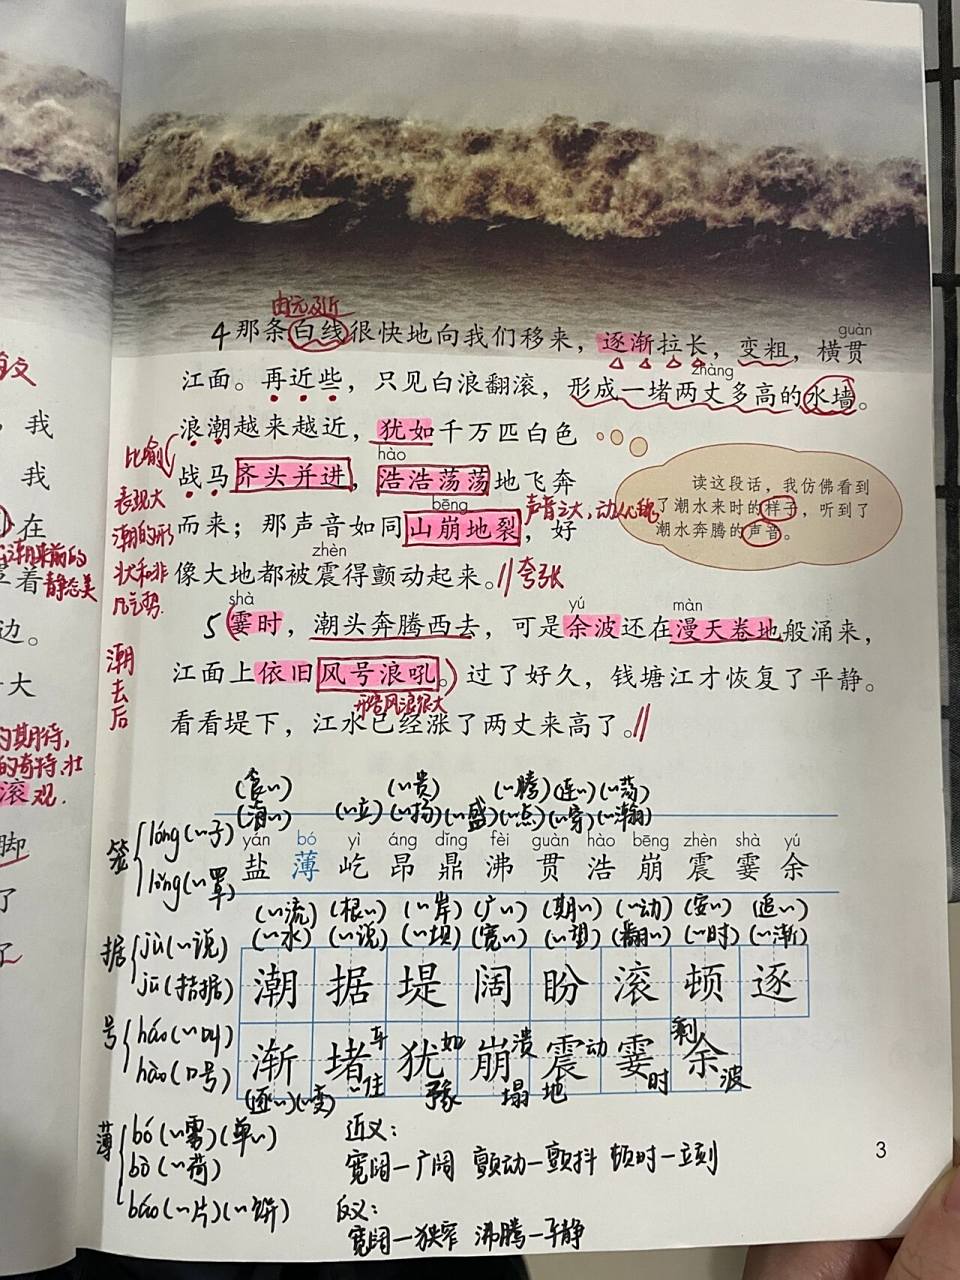 由远及近
4 那条白线很快地向我们移来，逐渐拉长，变粗，横贯
guàn
江面。再近些，只见白浪翻滚，形成一堵两丈多高的水墙。
zhàng
浪潮越来越近，犹如千万匹白色
战马齐头并进，浩浩荡荡地飞奔
hào
而来；那声音如同山崩地裂，好
bēng
像大地都被震得颤动起来。// 夸张
zhèn
声音之大，动人心魄
比喻
表现大
潮的形
状和非
凡气势.
读这段话，我仿佛看到
了潮水来时的样子，听到了
潮水奔腾的声音。
5 霎时，潮头奔腾西去，可是余波还在漫天卷地般涌来，
shà yú màn
江面上依旧风号浪吼。过了好久，钱塘江才恢复了平静。
形容风浪很大
看看堤下，江水已经涨了两丈来高了。//
潮
去
后
我
我
在
潮来前的
着 静态美
边。
大
的期待,
的奇特、壮
滚 观.
脚
了
(食〃) (〃贵) (〃腾)(连〃)(〃荡)
(海〃) (〃立)(〃扬)(〃盛)(〃点)(〃穿)(〃瀚)
yán bó yì áng dǐng fèi guàn hào bēng zhèn shà yú
盐 薄 屹 昂 鼎 沸 贯 浩 崩 震 霎 余
笼 lóng(〃子)
lǒng(〃罩)
(〃流) (根〃) (〃岸) (广〃) (期〃) (〃动) (安〃) (追〃)
(〃水) (〃说) (〃坝) (宽〃) (〃望) (翻〃) (〃时) (〃渐)
潮 据 堤 阔 盼 滚 顿 逐
据 jù(〃说)
jū(拮据)
渐 堵 犹 崩 震 霎 余
(逐〃)(〃变) 车 〃住 如 豫 溃 塌 动 地 时 剩 波
号 háo(〃叫)
hào(口号)
薄 bó(〃雾)(单〃)
bò(〃荷)
báo(〃片)(〃饼)
近义:
宽阔—广阔 颤动—颤抖 顿时—立刻
反义:
宽阔—狭窄 沸腾—平静
3